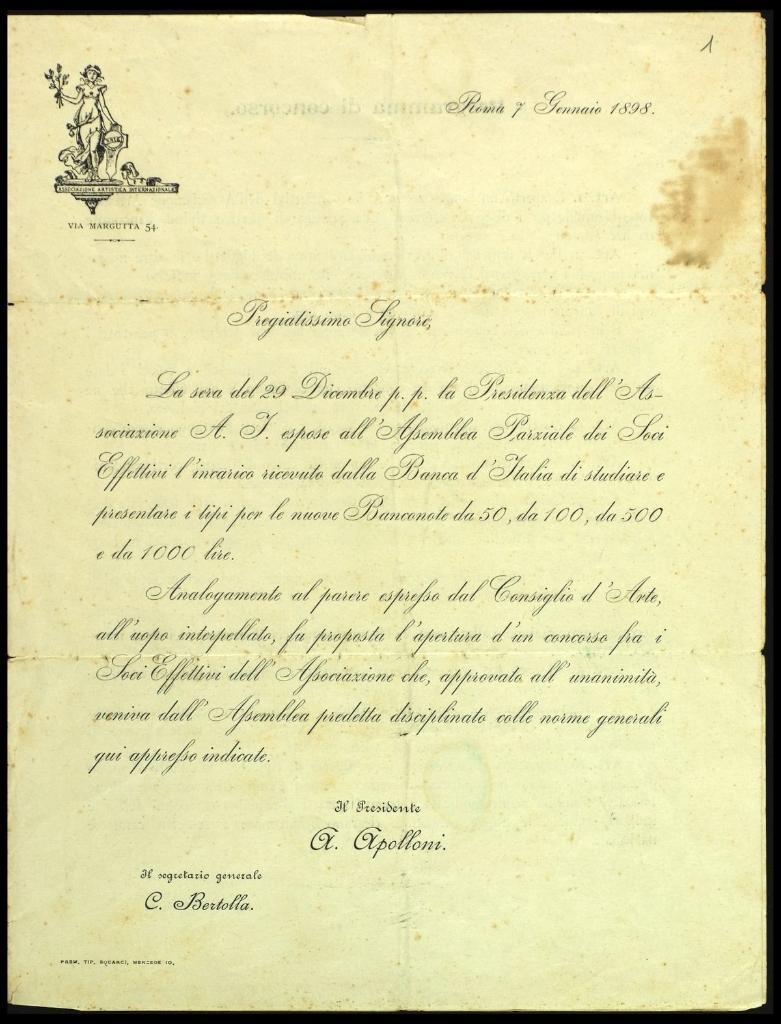 1
Roma 7 Gennaio 1898.
ASSOCIAZIONE ARTISTICA INTERNAZIONALE
VIA MARGUTTA 54
Pregiatissimo Signore,
La sera del 29 Dicembre p. p. la Presidenza dell'As-
sociazione A. I. espose all'Assemblea Parziale dei Soci
Effettivi l'incarico ricevuto dalla Banca d'Italia di studiare e
presentare i tipi per le nuove Banconote da 50, da 100, da 500
e da 1000 lire.
Analogamente al parere espresso dal Consiglio d'Arte,
all'uopo interpellato, fu proposta l'apertura d'un concorso fra i
Soci Effettivi dell'Associazione che, approvato all'unanimità,
veniva dall'Assemblea predetta disciplinato colle norme generali
qui appresso indicate.
Il Presidente
A. Apolloni.
Il segretario generale
C. Bertolla.
PREM. TIP. MERCEDE 10.